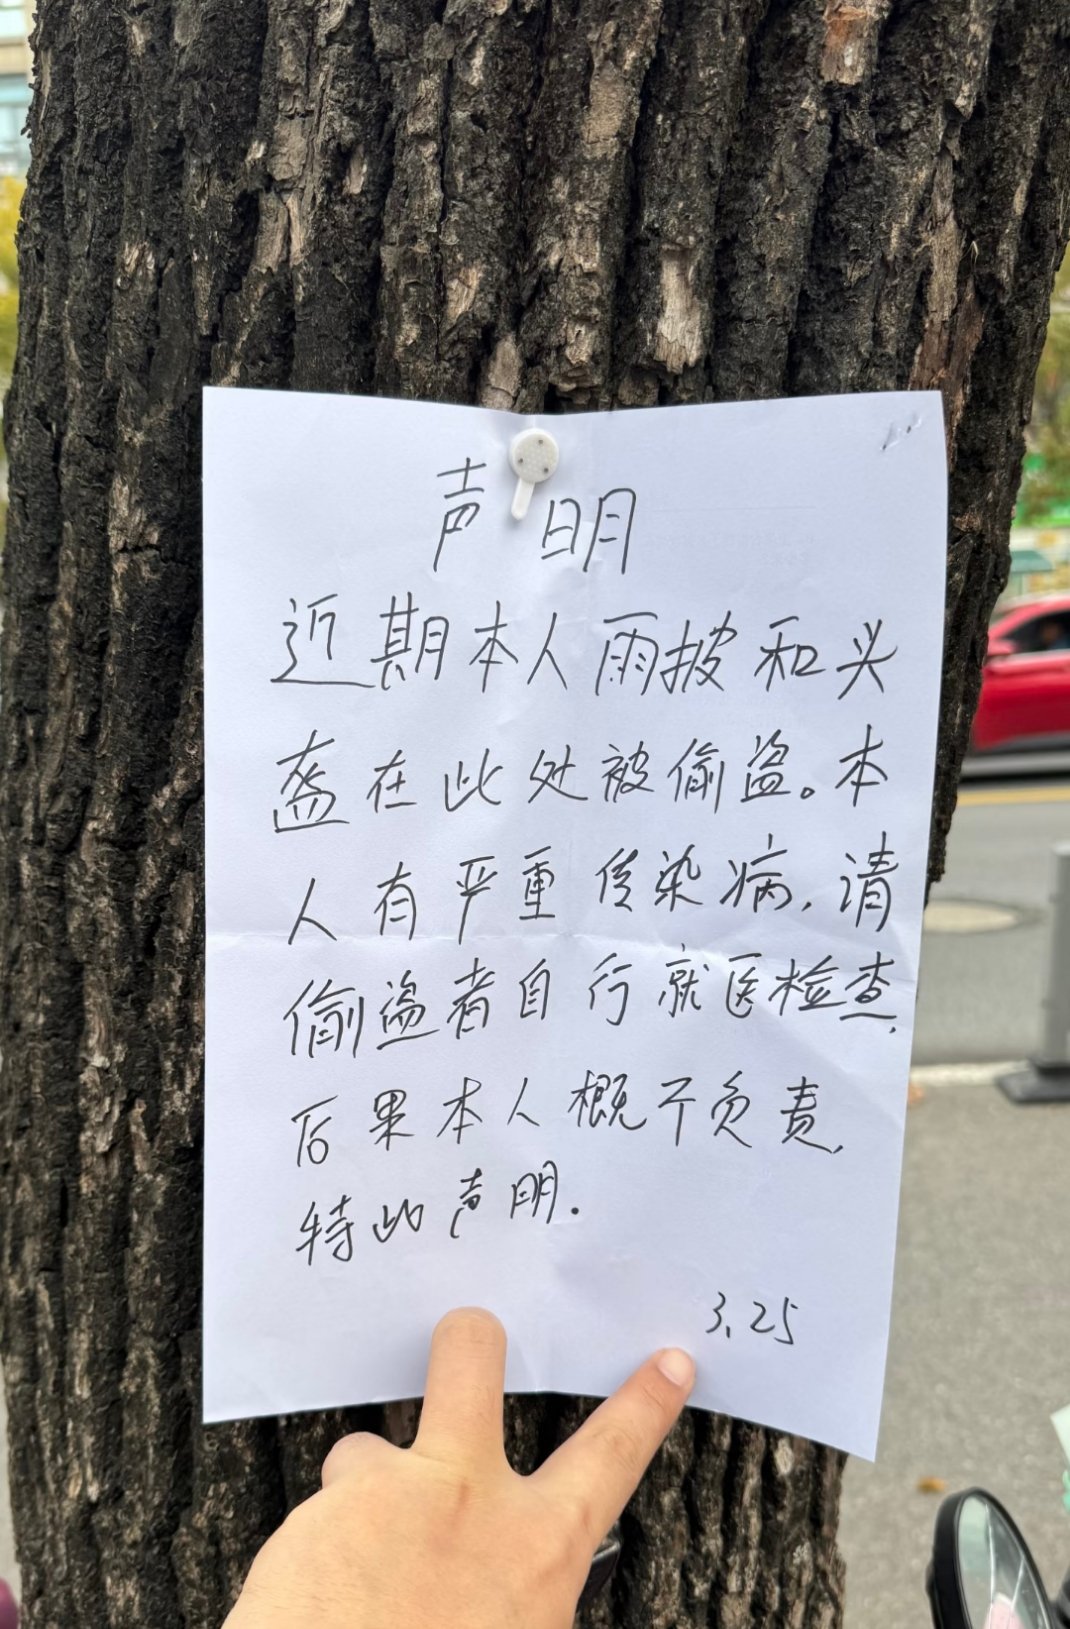 声明
近期本人雨披和头
盔在此处被偷盗。本
人有严重传染病，请
偷盗者自行就医检查，
后果本人概不负责，
特此声明.
3.25